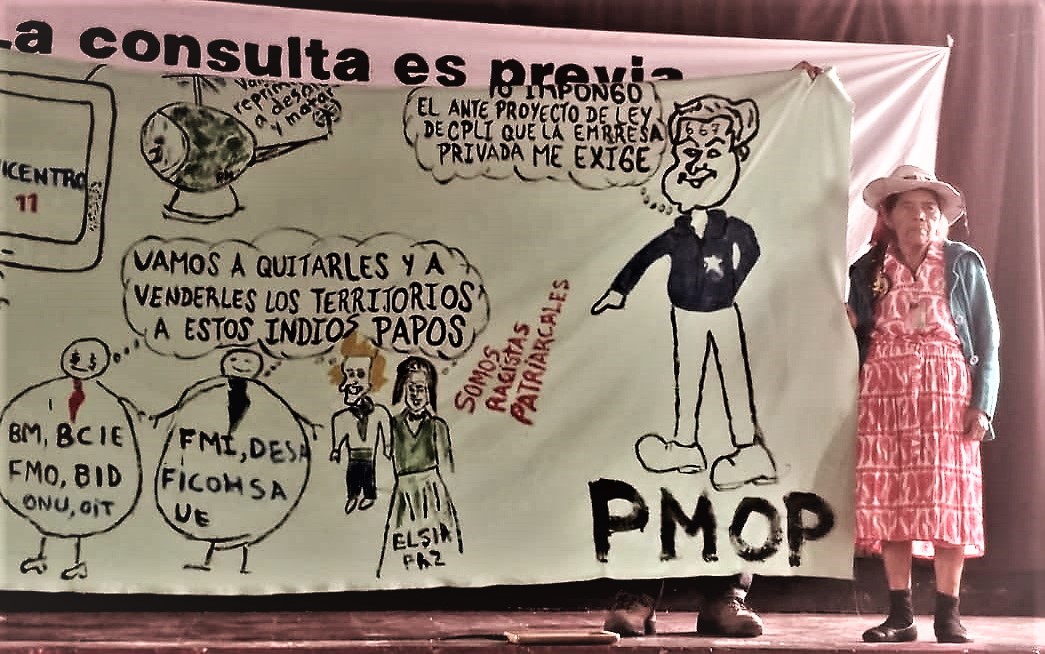 La consulta es previa
reprim
y matar
YO IMPONGO
EL ANTE PROYECTO DE LEY
DE CPLI QUE LA EMRRESA
PRIVADA ME EXIGE
667
ICENTRO
11
VAMOS A QUITARLES Y A
VENDERLES LOS TERRITORIOS
A ESTOS INDIOS PAPOS
SOMOS
RACISTAS
PATRIARCALES
BM, BCIE
FMO, BID
ONU, OIT
FMI, DESA
FICOHSA
UE
ELSIA
PAZ
PMOP